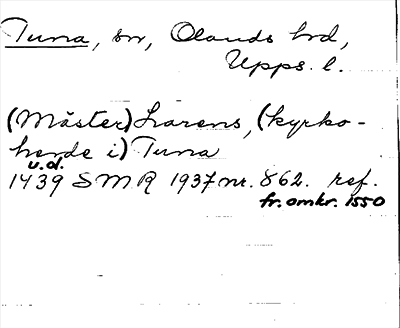 Tuna, sn, Olands hrd,
Upps. l.
(Mäster) Larens, (kyrko-
herde i) Tuna
u.d.
1439 SMR 1937 nr. 862. ref.
fr. omkr. 1550